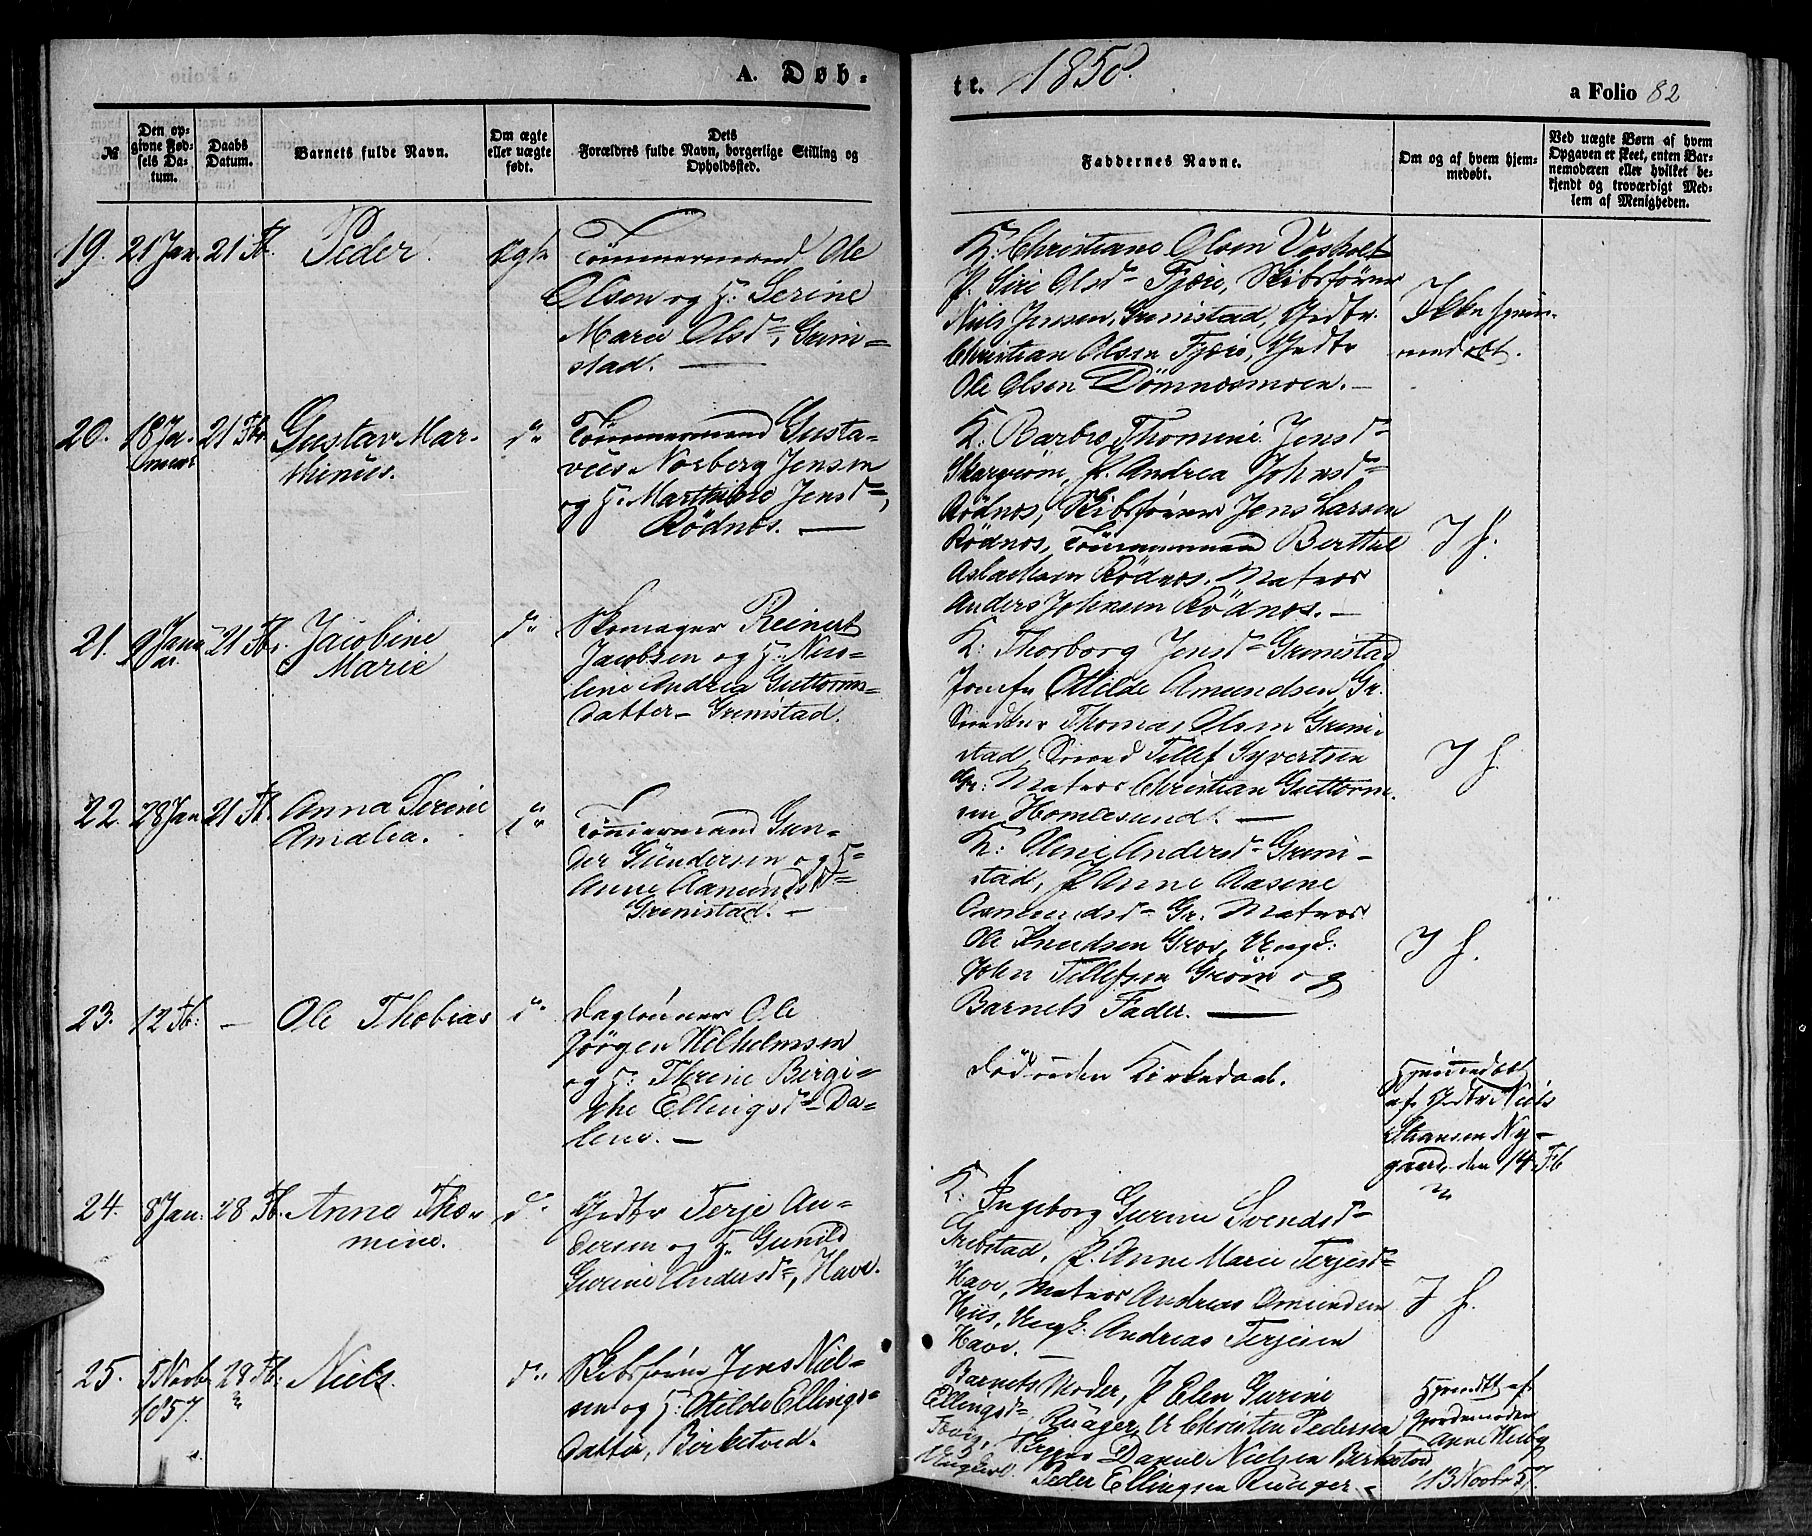 A. Døb-
te. 1858.
a Folio 82
№
Den op-
givne Fød-
sels Da-
tum.
Daabs
Datum.
Barnets fulde Navn.
Om ægte
eller uægte
født.
Dets
Forældres fulde Navn, borgerlige Stilling og
Opholdssted.
Faddernes Navne.
Om og af hvem hjem-
medøbt.
Ved uægte Børn af hvem
Opgaven er skeet, enten Bar-
nemoderen eller hvilket be-
kjendt og troværdigt Med-
lem af Menigheden.
19. 21 Jan. 21 Fb. Peder. Ægte
Tömmermand Ole
Olsen og H: Serine
Marie Olsd., Grim-
stad.
K: Christiane Olsen Vosholt
P. Siri Olsd. Fjære, Skibsfører
Niels Jensen, Grimstad, Gdbr.
Christian Olsen Fjære, Gdbr
Ole Olsen Dömnesmoen.
Ikke hjem-
medöbt.
20. 18 Ja- 21 Fbr. Gustav Mar-
nuar thinus.
do
Tömmermand Gusta-
vus Norberg Jensen
og H. Marthine Jensd.,
Rödnes.
K: Barbro Thomine Jensd.
P. Andrea Johnsd.
Rödnes, Skibsförer Jens Larsen
Rödnes, Tömmermand Berthel
Aslacksen Rödnes, Matros
Anders Johnsen Rödnes.
I h.
21. 9 Janu- 21 Fbr. Jacobine
ar. Marie
do
Skomager Reinert
Jacobsen og H: Nico-
line Andrea Guttorms-
datter Grimstad.
K: Thorborg Jensd. Grimstad
Jomfr Otilde Amundsen Gr.
Snedker Thomas Olsen Grim-
stad, Sömd Tellef Syvertsen
Gr: Matros Christian Guttorm-
sen Homlesund.
I h.
22. 28 Jan 21 Fb. Anna Serine
Amalia.
do
Tömmermand Gun-
der Gundersen og H.
Anne Aamundsd.
Grimstad.
K: Oline Andersd. Grim-
stad, P Anne Aasine
Aamundsd. Gr. Matros
Ole Knudsen Gros, Ungk:
John Tellefsen Groos og
Barnets Fader.
I h.
23. 12 Fb: — Ole Thobias do
Daglönner Ole
Jörgen Wilhelmsen
og H: Threne Birgi-
the Ellingsd. Da-
lene.
Död uden Kirkedaab.
Hjemmedöbt
af Gdbr Niels
Hansen Ny-
gaard den 14 Fb
24. 8 Jan. 28 Fb. Anne Tho-
mine.
do
Gdbr Terje An-
dersen og H. Gunild
Gurine Andersd., Have.
K: Ingeborg Gurine Svendsd.
Grebstad, P. Anne Marie Terjesd.
Have, Matros Andreas Omundsen
Hiis, Ungk. Andreas Terjesen
Have.
I h.
25. 5 Novbr 28 Fb. Niels. do
1857.
Skibsförer Jens Niel-
sen og H: Otilde Ellings-
datter, Birketved.
Barnets Moder, P Elen Gurine
Ellingsd. Rüager, Christen Pedersen
Daniel Nielsen Birketved
Peder Ellingsen Rüager
Hjemdbt af
Jordemoder
Anne
13 Novbr 57.